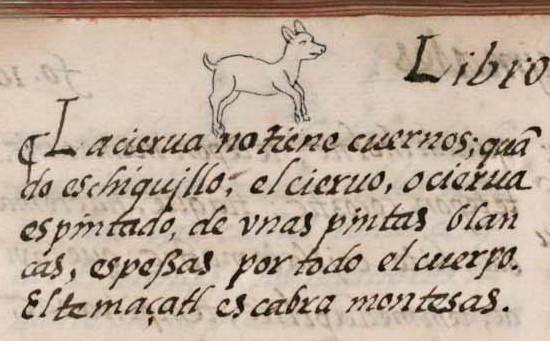 Libro
¶ La cierua no tiene cuernos; quā
do es chiquillo, el cieruo, o cierua
es pintado, de vnas pintas blan
cas, espeßas por todo el cuerpo.
El temaçatl es cabra montesas.